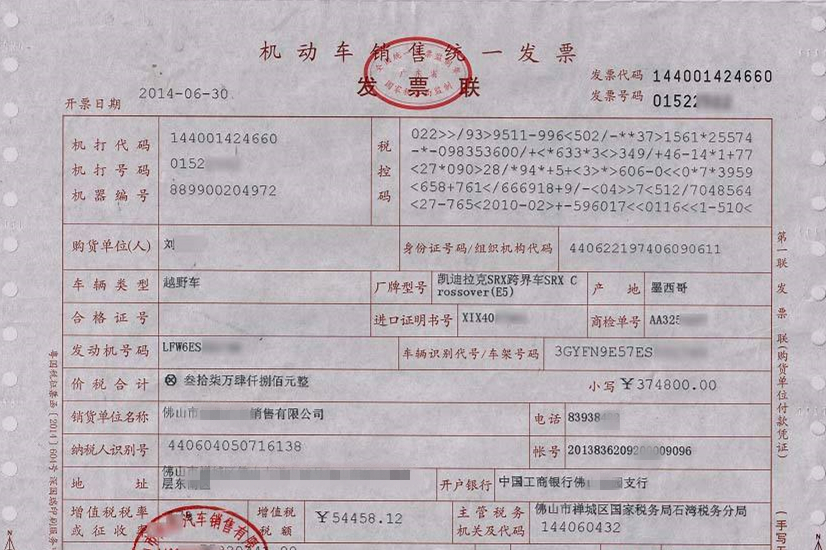 机动车销售统一发票
发票联
发票代码 144001424660
发票号码 0152
开票日期 2014-06-30
机打代码 144001424660
机打号码 0152
机器编号 889900204972
税控码
022>>/93>9511-996<502/-**37>1561*25574
-*-098353600/+<*633*3<>349/+46-14*1+77
<27*090>28/*94*+5+<3*>*606-0<<0*7*3959
<658+761</666918+9/-<04>>7<512/7048564
<27-765<2010-02>+-596017<<0116<<1-510<
购货单位(人) 刘 身份证号码/组织机构代码 440622197406090611
车辆类型 越野车 厂牌型号 凯迪拉克SRX跨界车SRX C
rossover(E5) 产地 墨西哥
合格证号 进口证明书号 XIX40 商检单号 AA325
发动机号码 LFW6ES 车辆识别代号/车架号码 3GYFN9E57ES
价税合计 ⊗ 叁拾柒万肆仟捌佰元整 小写 ¥374800.00
销货单位名称 佛山市 销售有限公司 电话 83938
纳税人识别号 440604050716138 帐号 2013836209200009096
地址 佛山市
层东 开户银行 中国工商银行佛 支行
增值税税率
或征收率 增值税
税额 ¥54458.12 主管税务
机关及代码 佛山市禅城区国家税务局石湾税务分局
144060432
汽车销售有限
第一联 发票联(购货单位付款凭证)
(手写无